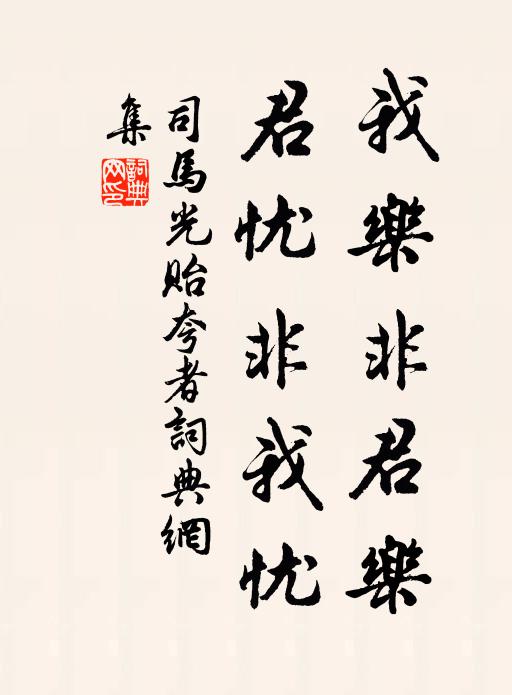 我樂非君樂
君忧非我忧
司馬光貽夸者詞典網
集
詞典
网印